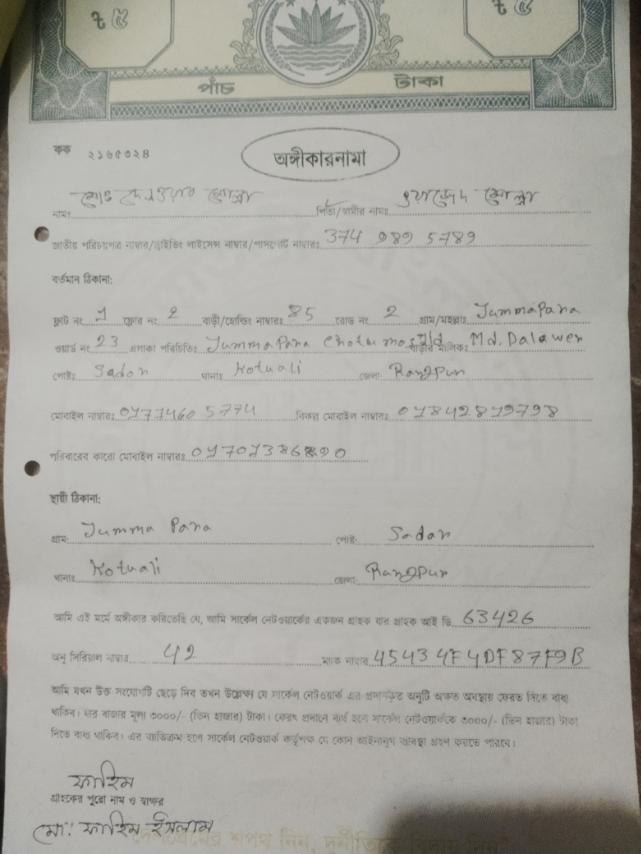 ৳ ৫ ৳ ৫
পাঁচ টাকা
কক ২১৬৫৩২৪
অঙ্গীকারনামা
নামঃ মোঃ দেলওয়ার পিতা/স্বামীর নামঃ
জাতীয় পরিচয়পত্র নাম্বার/ড্রাইভিং লাইসেন্স নাম্বার/পাসপোর্ট নাম্বারঃ 374 989 5789
বর্তমান ঠিকানা:
ফ্লাট নং 1 ফ্লোর নং 2 বাড়ী/হোল্ডিং নাম্বারঃ 85 রোড নং 2 গ্রাম/মহল্লাঃ JummaPara
ওয়ার্ড নং 23 এলাকা পরিচিতিঃ JummaPara Chotu mosjid বাড়ীর মালিক: Md. Dalawer
পোষ্টঃ Sador থানাঃ Kotuali জেলাঃ Rangpur
মোবাইল নাম্বারঃ 01771460 5774 বিকল্প মোবাইল নাম্বারঃ 01842819798
পরিবারের কারো মোবাইল নাম্বারঃ
স্থায়ী ঠিকানা:
গ্রাম: Jumma Para পোষ্ট: Sador
থানাঃ Kotuali জেলাঃ Rangpur
আমি এই মর্মে অঙ্গীকার করিতেছি যে, আমি সার্কেল নেটওয়ার্কের একজন গ্রাহক যার গ্রাহক আই ডি 63426
অনু সিরিয়াল নাম্বার 42 ম্যাক নাম্বার 45434F4DF87F9B
আমি যখন উক্ত সংযোগটি ছেড়ে দিব তখন উল্লেক্ষ যে সার্কেল নেটওয়ার্ক এর প্রদানকৃত অনুটি অক্ষত অবস্থায় ফেরত দিতে বাধ্য
থাকিব। যার বাজার মূল্য ৩০০০/- (তিন হাজার) টাকা। ফেরৎ প্রদানে ব্যর্থ হলে সার্কেল নেটওয়ার্ককে ৩০০০/- (তিন হাজার) টাকা
দিতে বাধ্য থাকিব। এর ব্যতিক্রম হলে সার্কেল নেটওয়ার্ক কর্তৃপক্ষ যে কোন আইনানুগ ব্যবস্থা গ্রহণ করতে পারবে।
ফাহিম
গ্রাহকের পুরো নাম ও স্বাক্ষর
মো: ফাহিম ইসলাম
দেশপ্রেমের শপথ নিন, দুর্নীতিকে বিদায় দিন